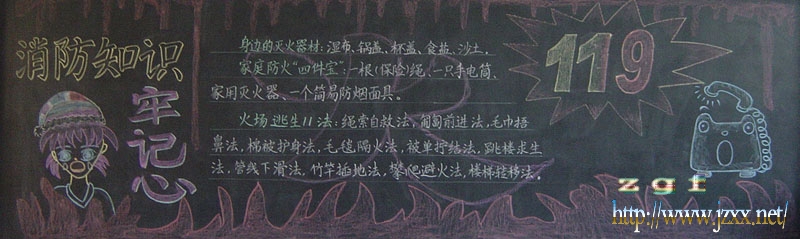 消防知识
牢记心
身边的灭火器材：湿布、锅盖、杯盖、食盐、沙土。
家庭防火“四件宝”：一根（保险）绳、一只手电筒、
家用灭火器、一个简易防烟面具。
火场逃生11法：绳索自救法，匍匐前进法，毛巾捂
鼻法，棉被护身法，毛毯隔火法，被单拧结法，跳楼求生
法，管线下滑法，竹竿插地法，攀爬避火法，楼梯转移法。
119
zgf
http://www.jzxx.net/